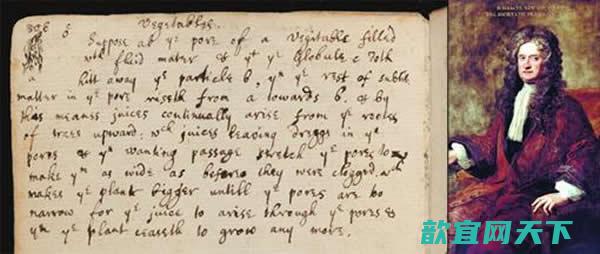 Vegetables.
Suppose ab ye pore of a Vegitable filled
wth fluid mater & yt ye Globule c doth
hitt away ye particle b, yn ye rest of subtile
matter in ye pore riseth from a towards b. & by
this meanes juices continually arise from ye rootes
of trees upward; wch juices leaving dreggs in ye
pores & yn wanting passage stretch ye pores to
make ym as wide as before they were clogged. wch
makes ye plant bigger untill ye pores are too
narrow for ye juice to arise through ye pores &
yn ye plant ceaseth to grow any more.
歆宜网天下